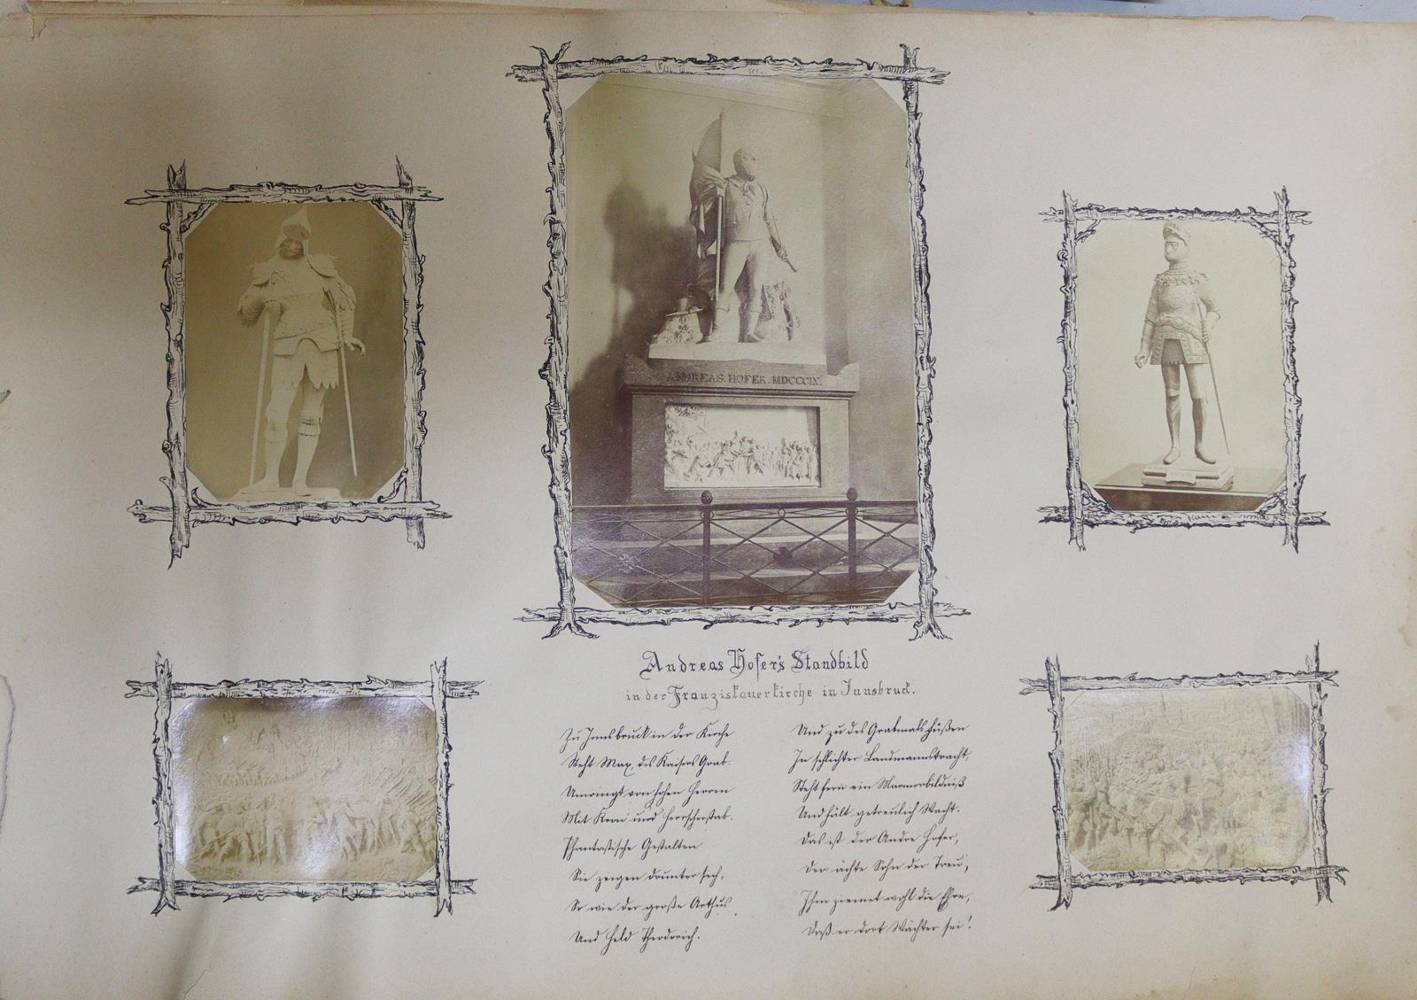 ANDREAS HOFER. MDCCCIX.
Andreas Hofer's Standbild
in der Franziskanerkirche in Innsbruck.
Zu Innsbruck in der Kirche
Steht Max, des Kaisers Grab.
Umringt von hohen Herren
Mit Kron' und Herrscherstab.
Phantastische Gestalten
Sie zeigen drunter sich,
So wie der große Arthus
Und Held Theodorich.
Und zu des Grabmals Füßen
In schlichter Landmannstracht,
Steht fern ein Marmorbildniß
Und hält getreulich Wacht.
Das ist der Andre Hofer,
Der ächte Sohn der Treu',
Ihm ziemet wohl die Ehre,
Daß er dort Wächter sei!